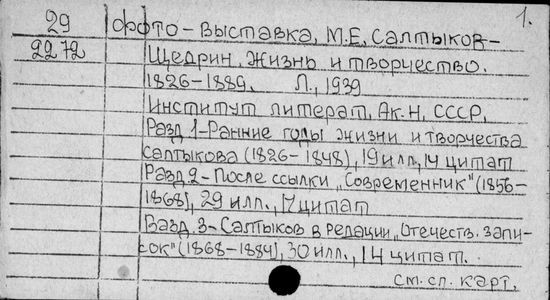 1.
29 Фото-выставка, М.Е. Салтыков-
2272 Щедрин. Жизнь и творчество.
1826-1889. Л., 1939
Институт литерат. Ак.Н. СССР.
Разд 1-Ранние годы жизни и творчества
Салтыкова (1826-1848), 19 илл, 14 цитат
Разд 2-После ссылки „Современник" (1856-
1868), 29 илл., 17 цитат
Разд. 3-Салтыков в редации „Отечеств. запи-
сок" (1868-1884), 30 илл., 14 цитат.
см. сл. карт.